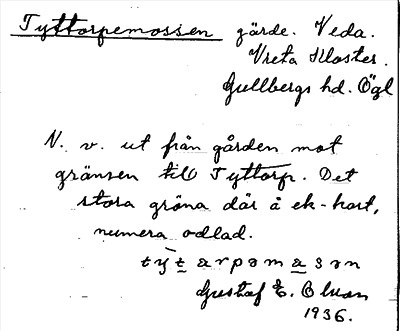 Tyttorpemossen gärde. Veda.
Vreta Kloster.
Gullbergs hd. Ögl
N. v. ut från gården mot
gränsen till Tyttorp. Det
stora gröna där å ek-kart,
numera odlad.
tỳt arpəmasən
Gustaf E. Olson
1936.